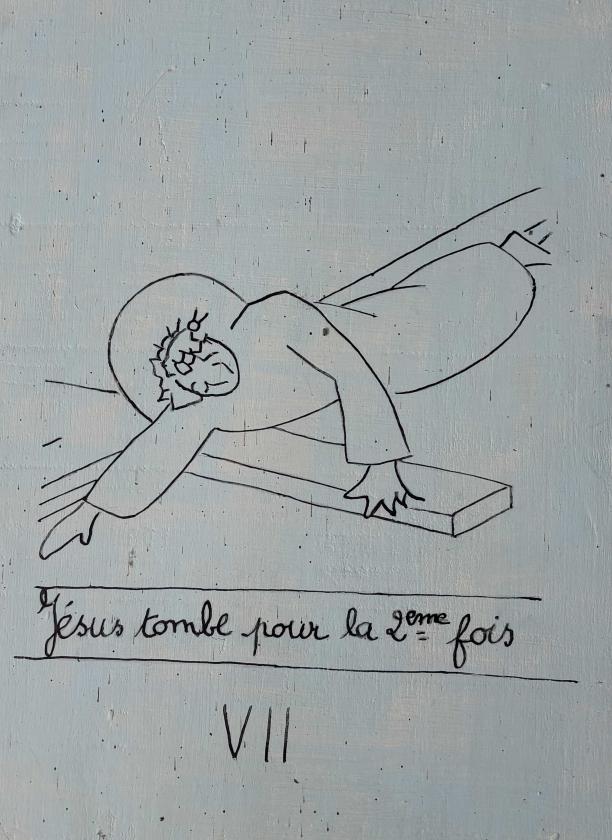 Jésus tombe pour la 2eme fois
VII